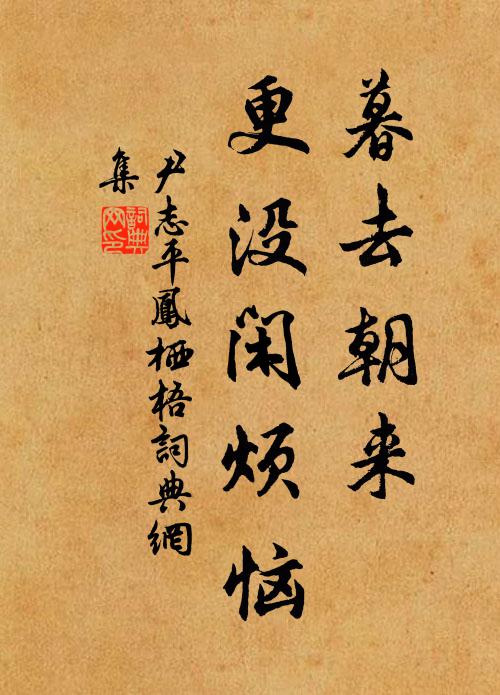 暮去朝来
更没闲烦恼
尹志平鳳栖梧詞典網
集
詞典
网印